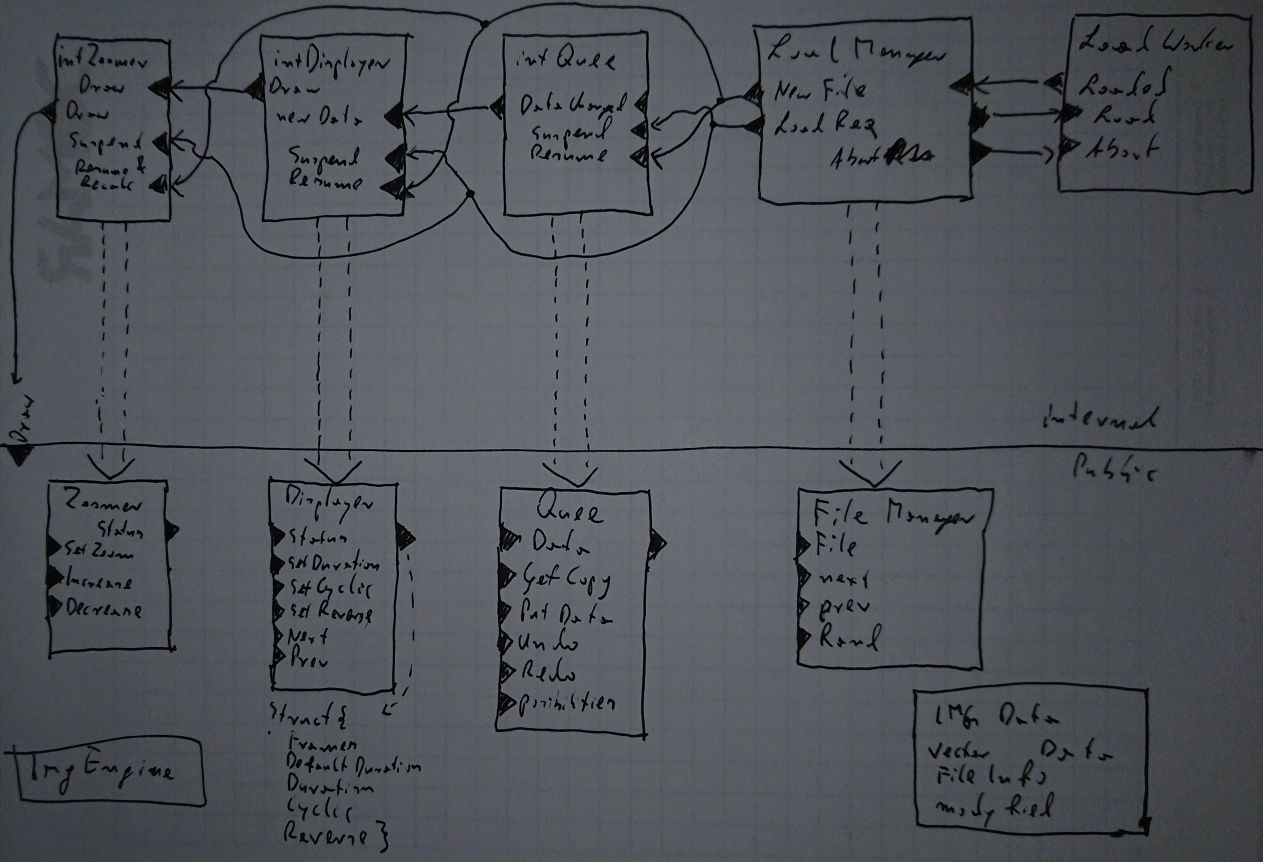 intZoomer
Draw
Draw
Suspend
Resume &
Recalc
intDisplayer
Draw
new Data
Suspend
Resume
intQuee
Data Changed
Suspend
Resume
Load Manager
New File
Load Req
Abort
Load Worker
Loaded
Load
Abort
Draw
internal
Public
Zoomer
Status
Set Zoom
Increase
Decrease
Displayer
Status
Set Duration
Set Cyclic
Set Reverse
Next
Prev
Struct {
Frames
Default Duration
Duration
Cyclic
Reverse }
Quee
Data
Get Copy
Put Data
Undo
Redo
File Manager
File
next
prev
ImgEngine
IMG Data
vector Data
File Info